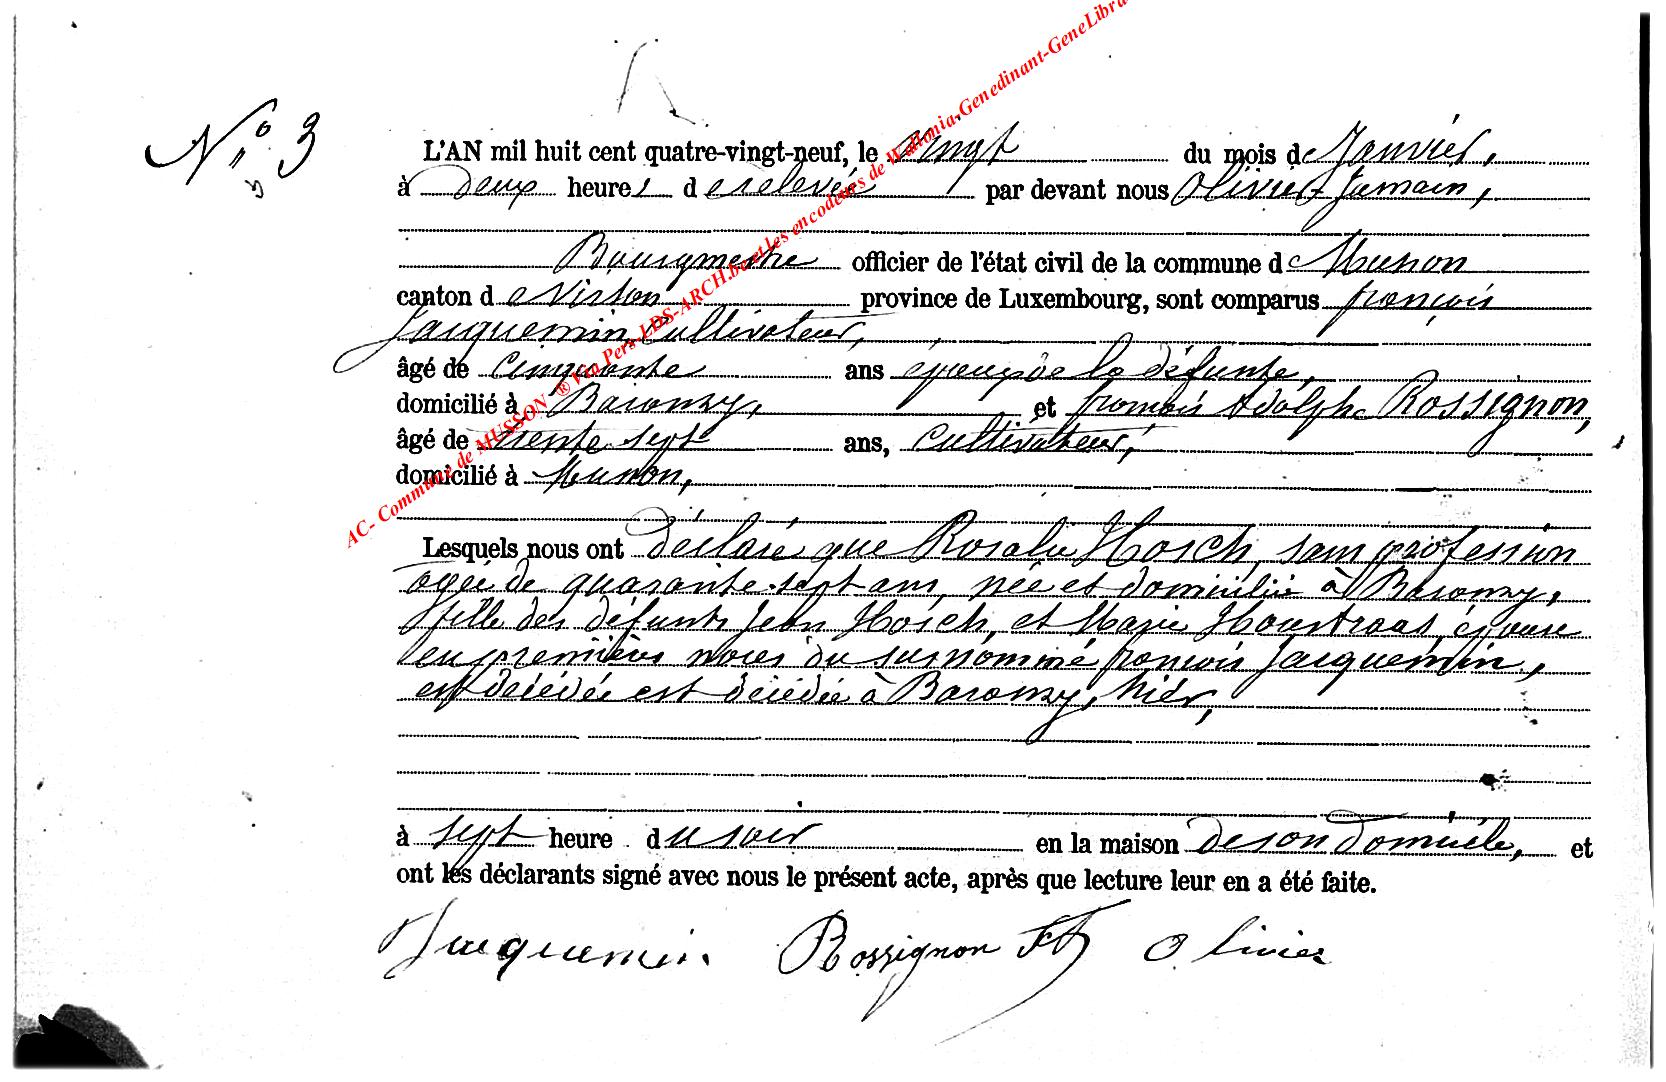 N° 3
L'AN mil huit cent quatre-vingt-neuf, le vingt du mois de Janvier,
à deux heures de relevée par devant nous Olivier Jumain,
Bourgmestre officier de l'état civil de la commune de Musson
canton de Virton province de Luxembourg, sont comparus françois
Jacquemin, Cultivateur,
âgé de cinquante ans époux de la défunte,
domicilié à Baranzy, et françois Adolphe Rossignon,
âgé de trente sept ans, cultivateur,
domicilié à Musson,
Lesquels nous ont déclaré que Rosalie Hosch, sans profession
agée de quarante-sept ans, née et domiciliée à Baranzy,
fille des défunts Jean Hosch, et Marie Houstraas, épouse
en premières noces du surnommé françois Jacquemin,
est décédée est décédée à Baranzy, hier,
à sept heure du soir en la maison de son domicile, et
ont les déclarants signé avec nous le présent acte, après que lecture leur en a été faite.
Jacquemin. Rossignon FA Olivier
AC- Commune de MUSSON ® Via Pers-LDS-ARCH.be et les encodeurs de Wallonia-Genedinant-GeneLibra